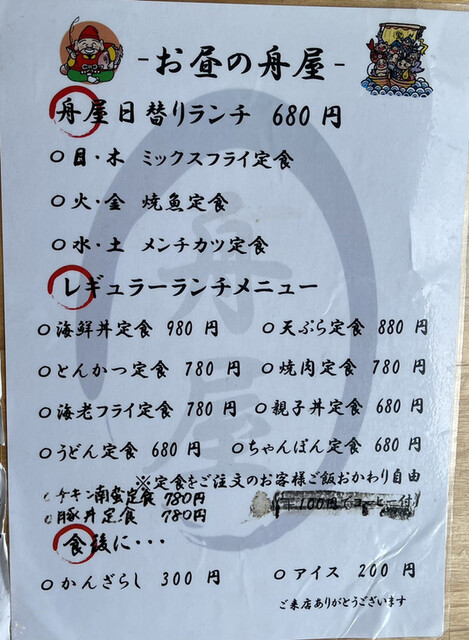 -お昼の舟屋-
舟屋日替りランチ 680 円
○ 目・木 ミックスフライ定食
○ 火・金 焼魚定食
○ 水・土 メンチカツ定食
レギュラーランチメニュー
○海鮮丼定食 980 円 ○天ぷら定食 880 円
○とんかつ定食 780 円 ○焼肉定食 780 円
○海老フライ定食 780 円 ○親子丼定食 680 円
○うどん定食 680 円 ○ちゃんぽん定食 680 円
※定食をご注文のお客様ご飯おかわり自由
○チキン南蛮定食 780円
○豚丼定食 780円
食後に・・・
○かんざらし 300 円 ○アイス 200 円
ご来店ありがとうございます
舟屋